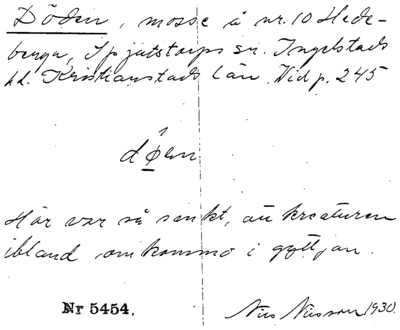 Döden, mosse å nr. 10 Hede-
berga, Spjutstorps sn. Ingelstads
hd. Kristianstads län. Vid p. 245
döen
Här var så sankt, att kreaturen
ibland omkommo i gyttjan.
Nr 5454. Nils Nilsson 1930.